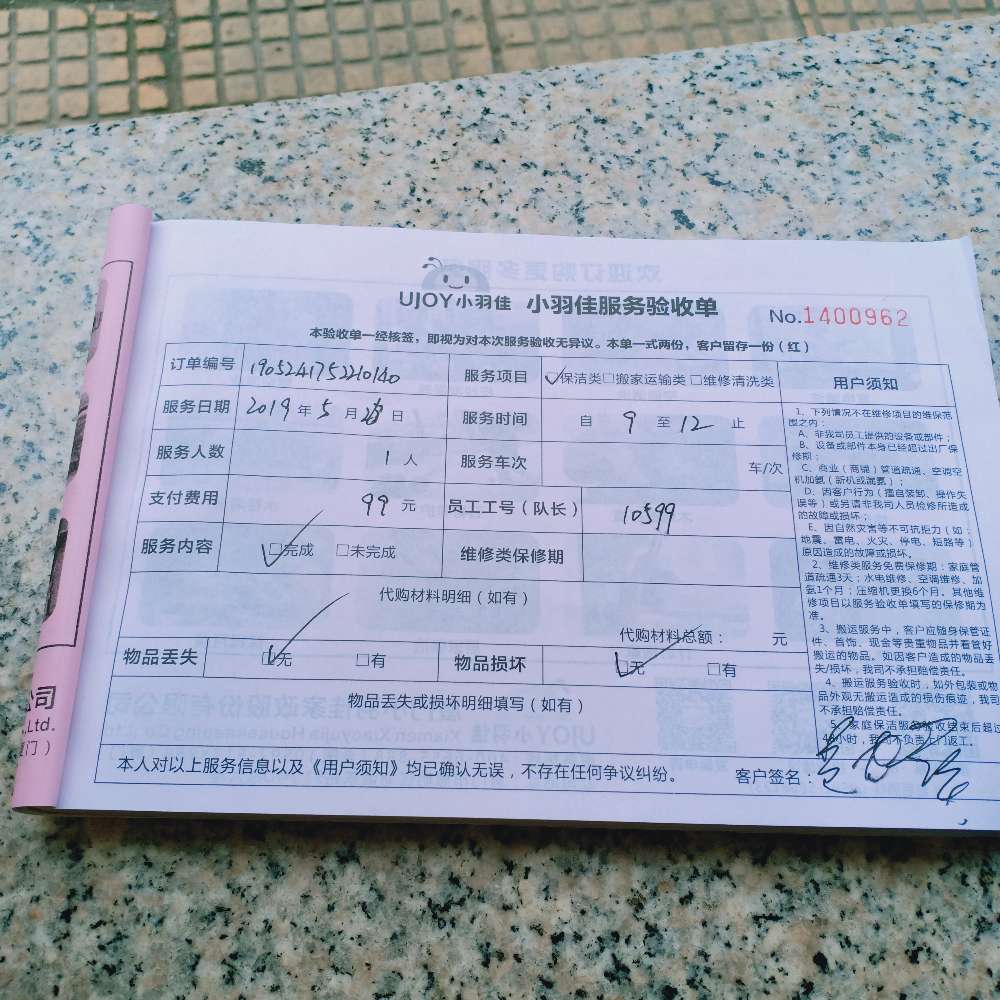 UJOY小羽佳 小羽佳服务验收单
No.1400962
本验收单一经核签，即视为对本次服务验收无异议。本单一式两份，客户留存一份（红）
订单编号 190524175220140 服务项目 ☑保洁类□搬家运输类□维修清洗类
服务日期 2019年5月 日 服务时间 自 9 至 12 止
服务人数 1人 服务车次 车/次
支付费用 99元 员工工号（队长） 10599
服务内容 ☑完成 □未完成 维修类保修期
代购材料明细（如有）
代购材料总额： 元
物品丢失 ☑无 □有 物品损坏 ☑无 □有
物品丢失或损坏明细填写（如有）
本人对以上服务信息以及《用户须知》均已确认无误，不存在任何争议纠纷。 客户签名：
用户须知
1、下列情况不在维修项目的维保范
围之内：
A、非我司员工提供的设备或部件；
B、设备或部件本身已经超过出厂保
修期；
C、商业（商铺）管道疏通、空调空
机加氨（新机或漏氨）；
D、因客户行为（擅自装卸、操作失
误等）或另请非我司人员检修所造成
的故障或损坏；
E、因自然灾害等不可抗拒力（如：
地震、雷电、火灾、停电、短路等）
原因造成的故障或损坏。
2、维修类服务免费保修期：家庭管
道疏通3天；水电维修、空调维修、加
氨1个月；压缩机更换6个月。其他维
修项目以服务验收单填写的保修期为
准。
3、搬运服务中，客户应随身保管证
件、首饰、现金等贵重物品并看管好
搬运的物品。如因客户造成的物品丢
失/损坏，我司不承担赔偿责任。
4、搬运服务验收时，如外包装或物
品外观无搬运造成的损伤痕迹，我司
不承担赔偿责任。
5、家庭保洁服务验收结束后超过
小时，我司不负责上门返工。
公司
.,Ltd.
门）